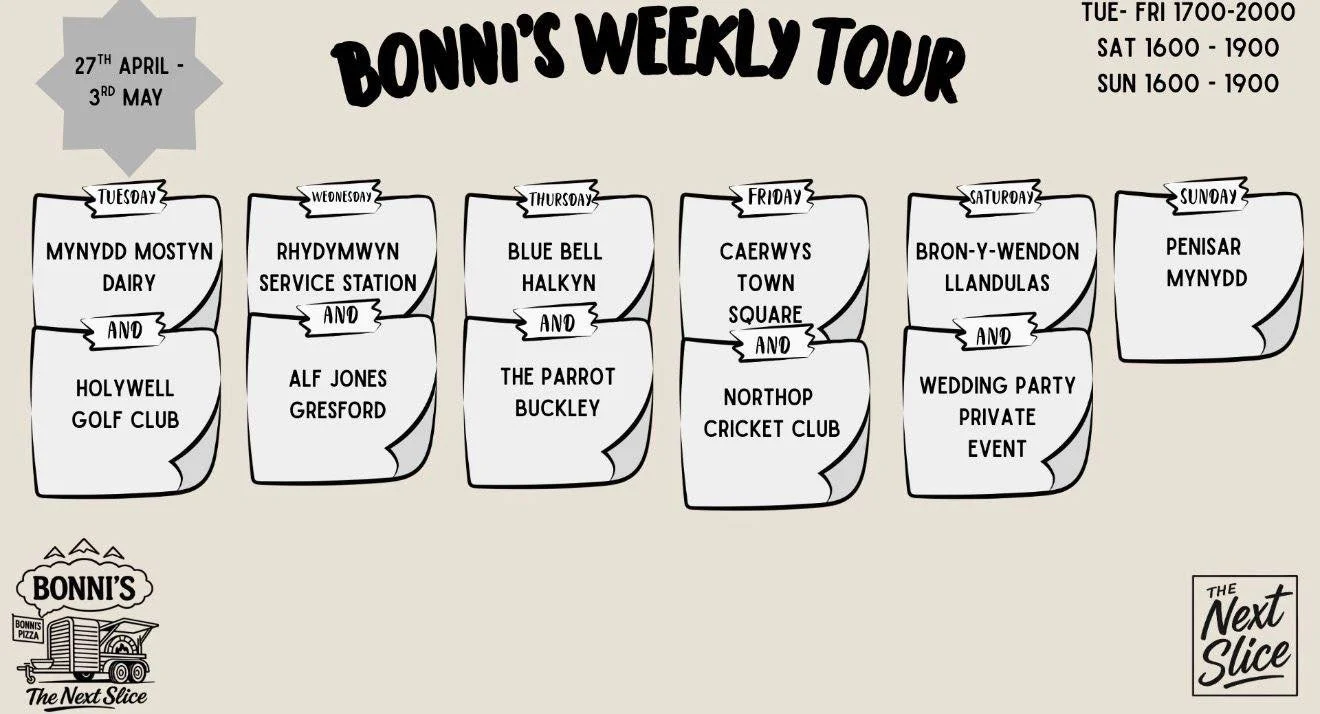 27TH APRIL -
3RD MAY
BONNI'S WEEKLY TOUR
TUE- FRI 1700-2000
SAT 1600 - 1900
SUN 1600 - 1900
TUESDAY
MYNYDD MOSTYN
DAIRY
AND
HOLYWELL
GOLF CLUB
WEDNESDAY
RHYDYMWYN
SERVICE STATION
AND
ALF JONES
GRESFORD
THURSDAY
BLUE BELL
HALKYN
AND
THE PARROT
BUCKLEY
FRIDAY
CAERWYS
TOWN
SQUARE
AND
NORTHOP
CRICKET CLUB
SATURDAY
BRON-Y-WENDON
LLANDULAS
AND
WEDDING PARTY
PRIVATE
EVENT
SUNDAY
PENISAR
MYNYDD
BONNI'S
BONNI'S
PIZZA
The Next Slice
THE
Next
Slice